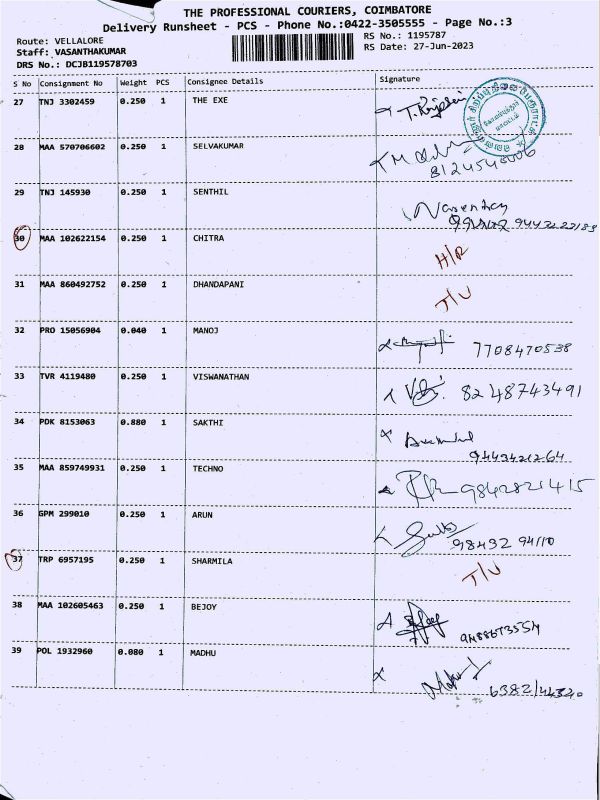 THE PROFESSIONAL COURIERS, COIMBATORE
Delivery Runsheet - PCS - Phone No.:0422-3505555 - Page No.:3
Route: VELLALORE RS No.: 1195787
Staff: VASANTHAKUMAR RS Date: 27-Jun-2023
DRS No.: DCJB119578703
S No Consignment No Weight PCS Consignee Details Signature
27 TNJ 3302459 0.250 1 THE EXE
28 MAA 570706602 0.250 1 SELVAKUMAR
29 TNJ 145930 0.250 1 SENTHIL
30 MAA 102622154 0.250 1 CHITRA H/R
31 MAA 860492752 0.250 1 DHANDAPANI T/U
32 PRO 15056904 0.040 1 MANOJ 7708470538
33 TVR 4119480 0.250 1 VISWANATHAN 8248743491
34 PDK 8153063 0.880 1 SAKTHI 9443421264
35 MAA 859749931 0.250 1 TECHNO 9842821415
36 GPM 299010 0.250 1 ARUN 98432 94110
37 TRP 6957195 0.250 1 SHARMILA T/U
38 MAA 102605463 0.250 1 BEJOY
39 POL 1932960 0.080 1 MADHU